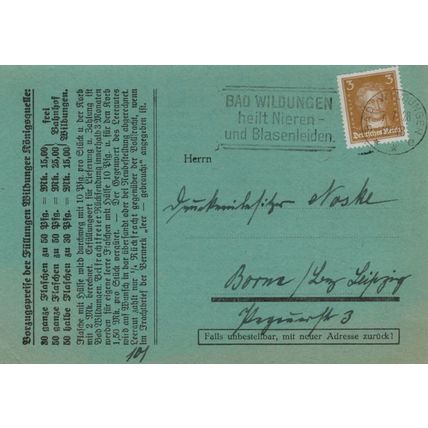 Vorzugspreise der Füllungen Wildunger Königsquelle:
30 ganze Flaschen zu 50 Pfg. = Mk. 15,00 frei
50 ganze Flaschen zu 50 Pfg. = Mk. 25,00 Bahnhof
50 halbe Flaschen zu 30 Pfg. = Mk. 15,00 Wildungen.
Flasche mit Hülse wird durchweg mit 10 Pfg. pro Stück u. der Korb
mit 2 Mk. berechnet. Erfüllungsort für Lieferung und Zahlung ist
Bad Wildungen. Bei frachtfreier Rücksendung innerhalb 3 Monaten
werden für eigene leere Flaschen mit Hülse 10 Pfg. u. für den Korb
1,50 Mk. pro Stück vergütet. — Der Gegenwert des Leergutes
wird auf Wunsch in bar übersandt oder bei Neubestellung abgerechnet.
Leergut zahlt nur ½ Rückfracht gegenüber der Vollfracht, wenn
im Frachtbrief der Vermerk „leer — gebraucht" angegeben ist.
101
BAD WILDUNGEN
heilt Nieren-
und Blasenleiden.
3 3
Deutsches Reich
Herrn
Druckereibesitzer Noske
Borna / Bez Leipzig
3
Falls unbestellbar, mit neuer Adresse zurück!